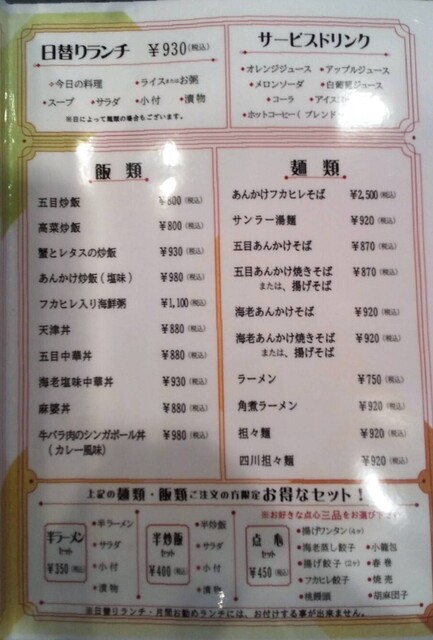 日替りランチ ¥930(税込)
・今日の料理 ・ライスまたはお粥
・スープ ・サラダ ・小付 ・漬物
※日によって麺類の場合もございます。
サービスドリンク
・オレンジジュース ・アップルジュース
・メロンソーダ ・白葡萄ジュース
・コーラ ・アイスコーヒー
・ホットコーヒー(ブレンド
飯類
五目炒飯 ¥800(税込)
高菜炒飯 ¥800(税込)
蟹とレタスの炒飯 ¥930(税込)
あんかけ炒飯(塩味) ¥980(税込)
フカヒレ入り海鮮粥 ¥1,100(税込)
天津丼 ¥880(税込)
五目中華丼 ¥880(税込)
海老塩味中華丼 ¥930(税込)
麻婆丼 ¥880(税込)
牛バラ肉のシンガポール丼 ¥980(税込)
(カレー風味)
麺類
あんかけフカヒレそば ¥2,500(税込)
サンラー湯麺 ¥920(税込)
五目あんかけそば ¥870(税込)
五目あんかけ焼きそば ¥870(税込)
または、揚げそば
海老あんかけそば ¥920(税込)
海老あんかけ焼きそば ¥920(税込)
または、揚げそば
ラーメン ¥750(税込)
角煮ラーメン ¥920(税込)
担々麺 ¥920(税込)
四川担々麺 ¥920(税込)
上記の麺類・飯類ご注文の方限定 お得なセット!
※お好きな点心三品をお選び下さい
半ラーメン
セット
¥350(税込)
・半ラーメン
・サラダ
・小付
・漬物
半炒飯
セット
¥400(税込)
・半炒飯
・サラダ
・小付
・漬物
点心
セット
¥450(税込)
・揚げワンタン(4ヶ)
・海老蒸し餃子 ・小籠包
・揚げ餃子(2ヶ) ・春巻
・フカヒレ餃子 ・焼売
・桃饅頭 ・胡麻団子
※日替りランチ・月間お勧めランチには、お付けする事が出来ません。